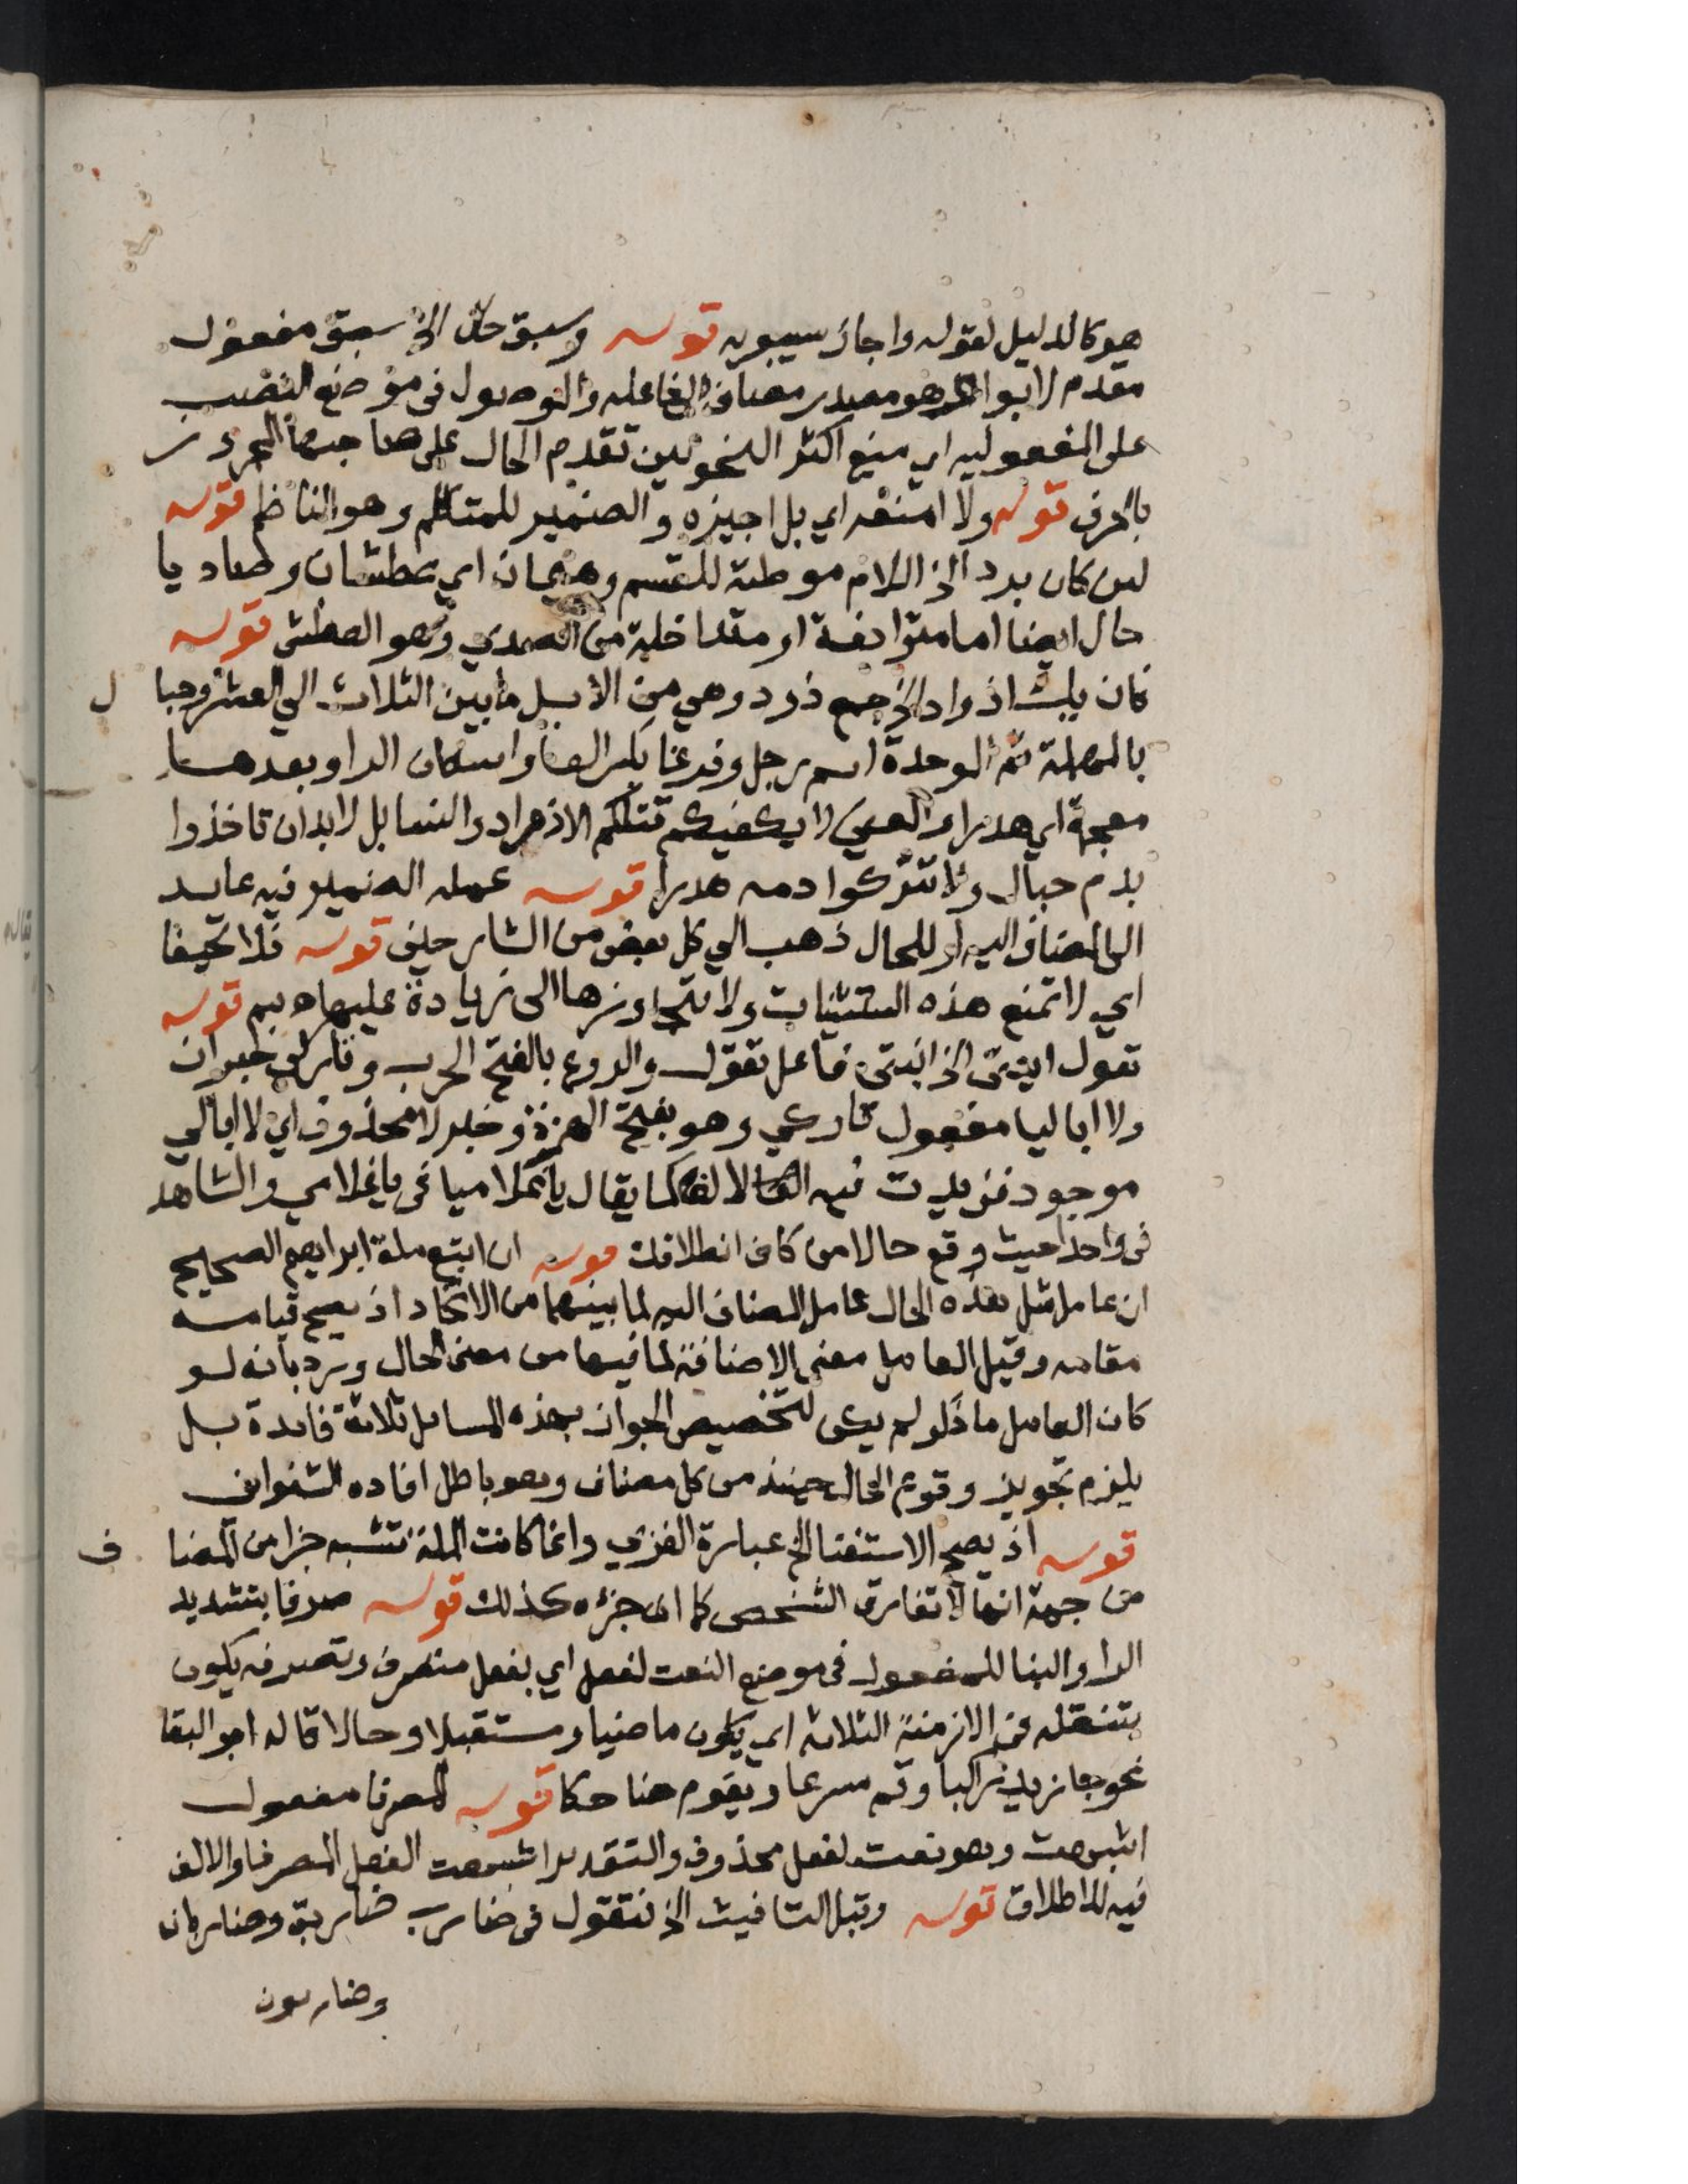 هو كالدليل لقوله واجاز سيبويه قوله وسبق حال الخ سبق مفعول
مقدم لابوا الخ وهو مصدر مضاف الى فاعله والموصول في موضع النصب
على المفعوليه اي منع اكثر النحويين تقدم الحال على صاحبها المجرور
بالحرف قوله ولا امنعه اي بل اجيزه والضمير للمتكلم وهو الناظم قوله
لين كان برد الخ اللام موطئة للقسم وهيمان اي عطشان وصاديا
حال ايضا اما مترادفة او متداخلة من الصدي وهو العطش قوله
فان يك اذواد الخ جمع ذود وهي من الابل ما بين الثلاث الي العشر وحبال
بالمهملة ثم الموحدة اسم رجل وفرغا بكسر الفا واسكان الرا وبعدها
معجمة اي هدرا والمعنى لا يكفيكم قتلكم الاذواد والنسا بل لا بد ان تاخذوا
بدم حبال ولا تتركوا دمه هدرا قوله عمله الضمير فيه عايد
الى المضاف اليه او للحال ذهب الي كل بعض من الشارحين قوله فلا تحيفا
اي لا تمنع هذه المستثنيات ولا تتجاوزها الى زيادة عليها قوله
تقول ابنتي الخ ابنتي فاعل تقول والروع بالفتح الحرب وتاركي خبر ان
ولا اباليا مفعول تاركي وهو بفتح الهمزة وخبر لا محذوف اي لا ابا لي
موجود فزيدت فيه الالف كما يقال يا غلاميا في يا غلامي والشاهد
في واحدا حيث وقع حالا من كاف انطلاقك قوله ان اتبع ملة ابراهيم الصحيح
ان عامل مثل هذه الحال عامل المضاف اليه لما بينهما من الاتحاد اذ يصح قيامه
مقامه وقيل العامل معنى الاضافة لما فيها من معنى الحال ورد بانه لو
كان العامل ما ذكر لم يكن لتخصيص الجواز بهذه المسايل الثلاثة فايدة بل
يلزم تجويز وقوع الحال حينئذ من كل مضاف وهو باطل افاده الشنواني
قوله اذ يصح الاستغنا الخ عبارة الغزي وانما كانت الملة تشبه جزا من المضاف
من جهة انها لا تفارق الشخص كما ان جزءه كذلك قوله صرفا بتشديد
الرا والبنا للمفعول في موضع النعت لفعل اي بفعل متصرف وتصرفه يكون
بتنقله في الازمنة الثلاثة اي يكون ماضيا ومستقبلا وحالا قاله ابو البقا
نحو جا زيد راكبا وقم مسرعا ويقوم ضاحكا قوله المصرفا مفعول
اشبهت وهو نعت لفعل محذوف والتقدير اشبهت الفعل المصرفا والالف
فيه للاطلاق قوله وقبل التانيث الخ فتقول في ضارب ضاربة وضاربان
وضاربون